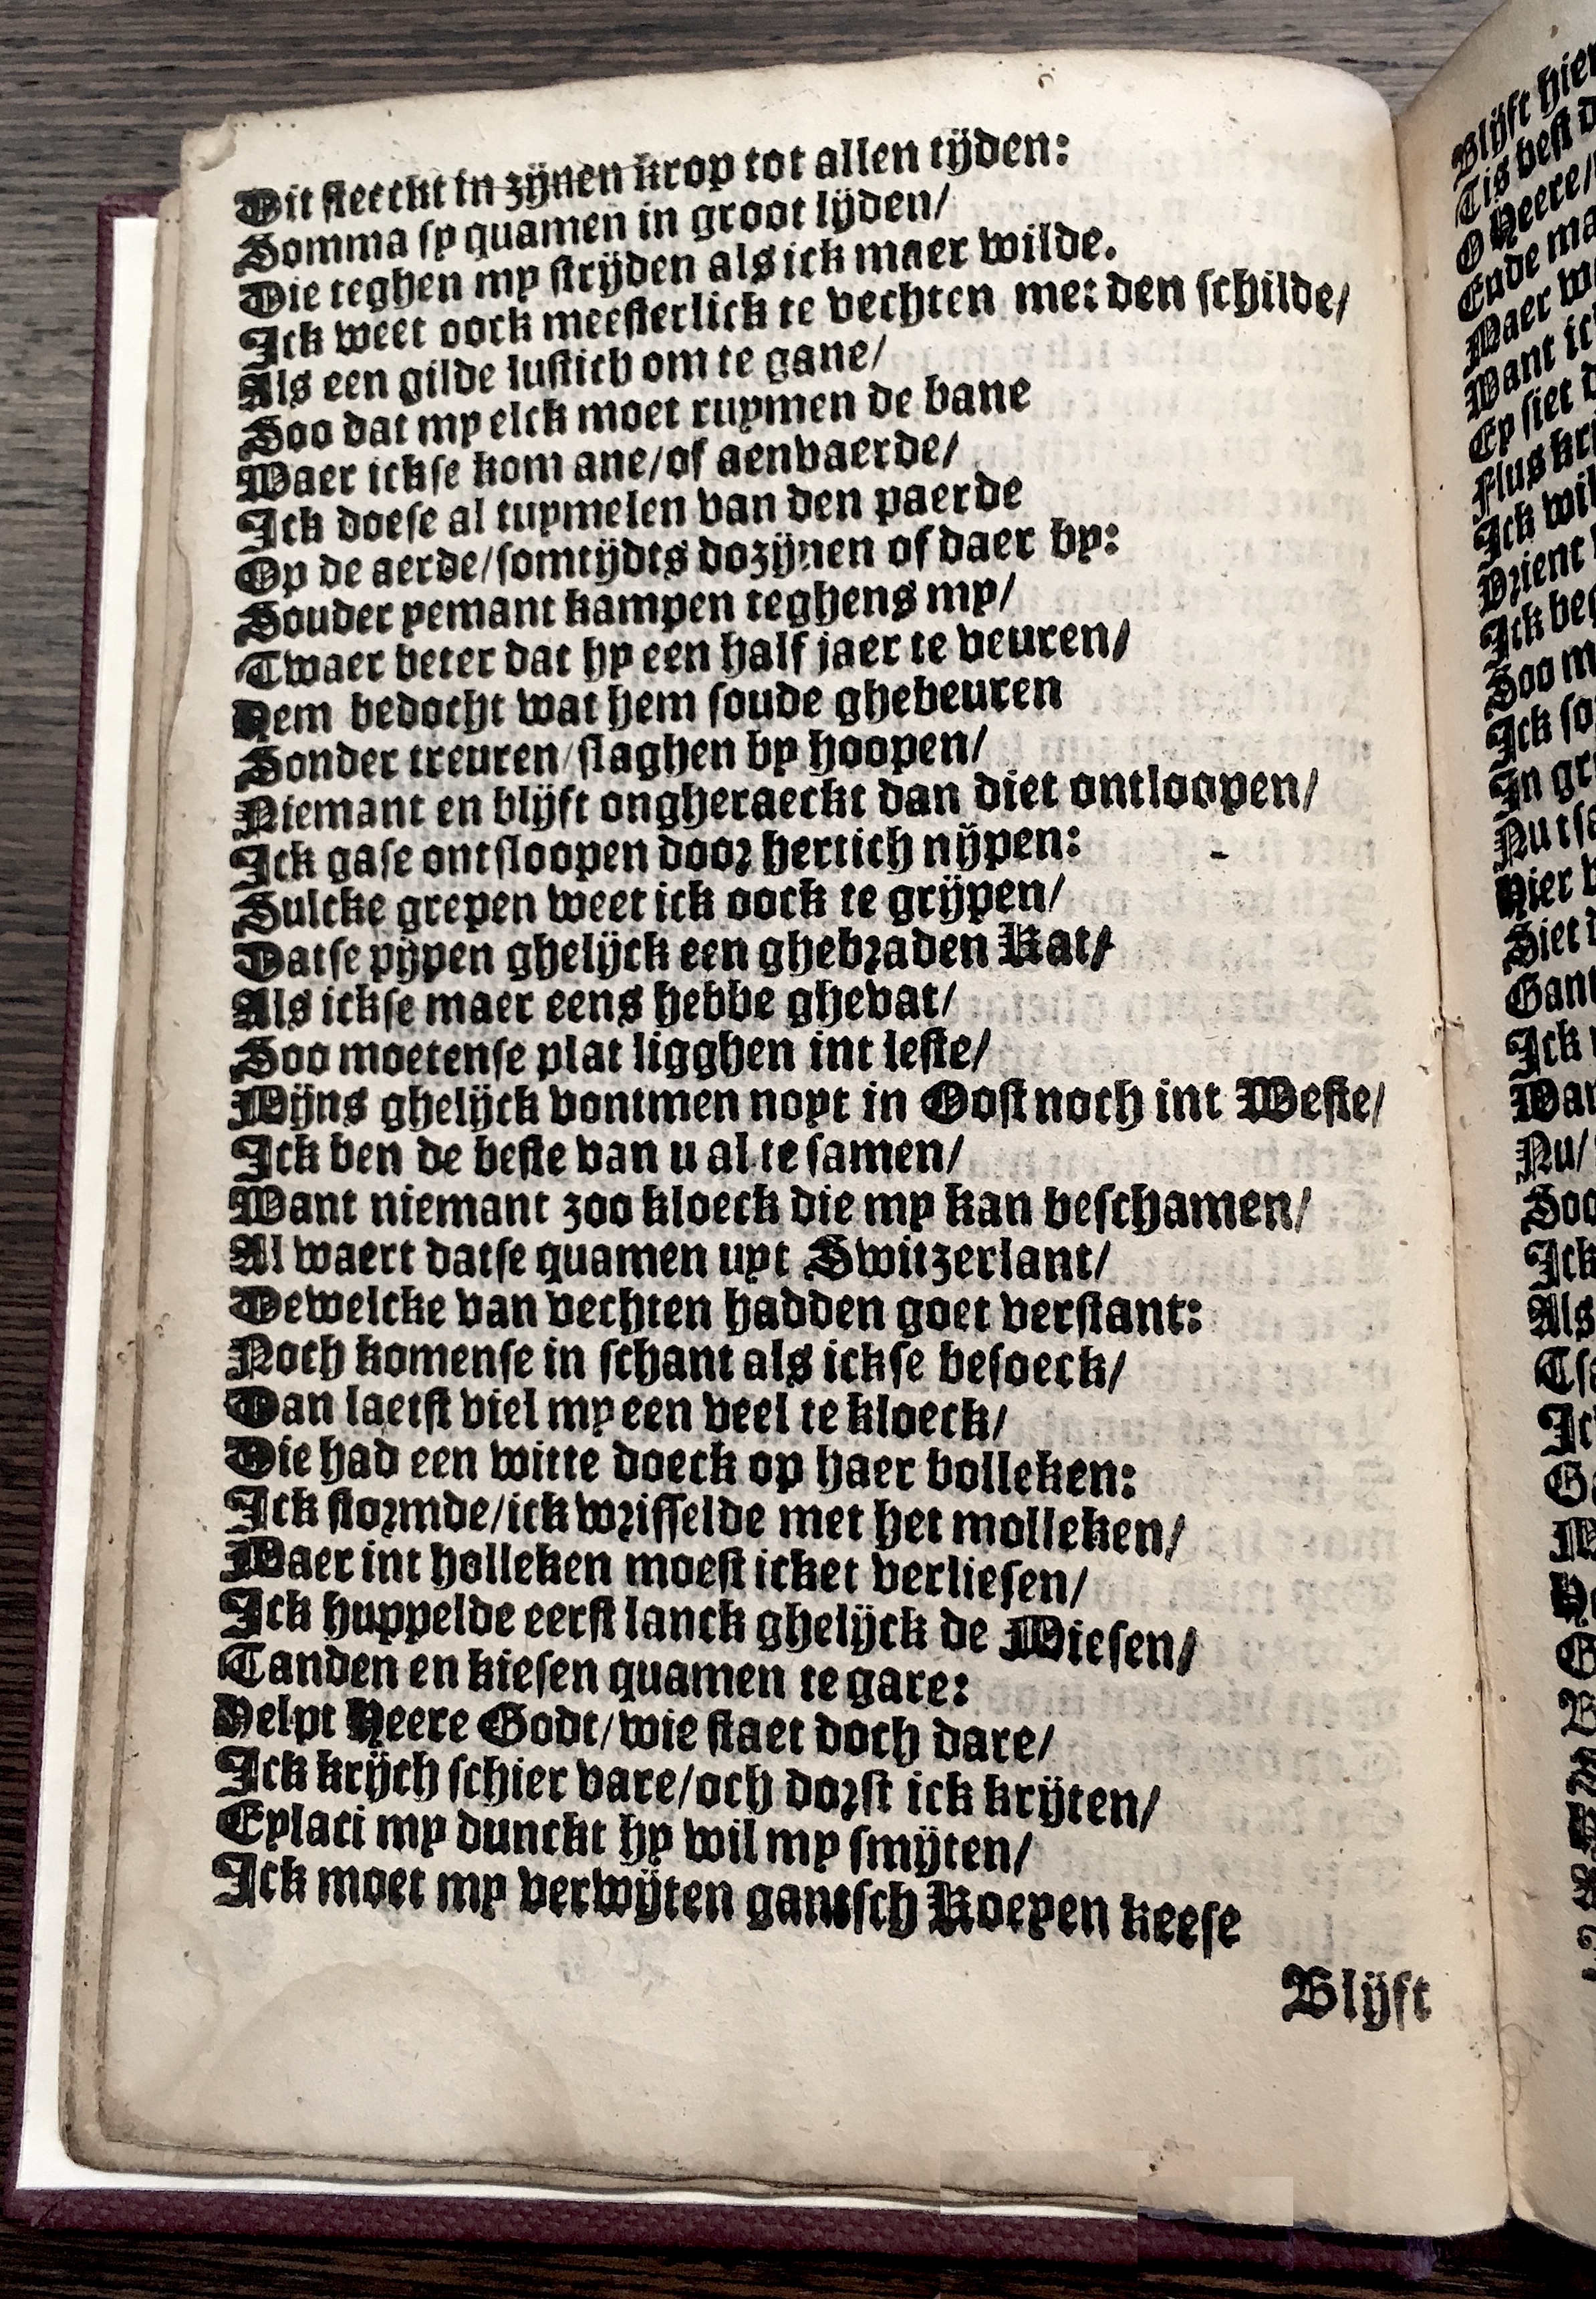 Dit steeckt in zijnen krop tot allen tijden:
Somma sy quamen in groot lijden/
Die teghen my strijden als ick maer wilde.
Ick weet oock meesterlick te vechten met den schilde/
Als een gilde lustich om te gane/
Soo dat my elck moet ruymen de bane
Waer ickse kom ane/of aenvaerde/
Ick doese al tuymelen van den paerde
Op de aerde/somtijdts dozijnen of daer by:
Souder yemant kampen teghens my/
Twaer beter dat hy een half jaer te veuren/
Hem bedocht wat hem soude ghebeuren
Sonder treuren/slaghen by hoopen/
Niemant en blijft ongheraeckt dan diet ontloopen/
Ick gase ontsloopen door hertich nijpen:
Sulcke grepen weet ick oock te grijpen/
Datse pijpen ghelijck een ghebraden Kat/
Als ickse maer eens hebbe ghevat/
Soo moetense plat ligghen int leste/
Mijns ghelijck vontmen noyt in Oost noch int Weste/
Ick ben de beste van u al te samen/
Want niemant zoo kloeck die my kan beschamen/
Al waert datse quamen uyt Switzerlant/
Dewelcke van vechten hadden goet verstant:
Noch komense in schant als ickse besoeck/
Dan laetst viel my een veel te kloeck/
Die had een witte doeck op haer bolleken:
Ick stormde/ick wriffelde met het molleken/
Maer int holleken moest icket verliesen/
Ick huppelde eerst lanck ghelijck de Biesen/
Tanden en kiesen quamen te gare:
Helpt Heere Godt/wie staet doch dare/
Ick krijch schier vare/och dorst ick krijten/
Eylaci my dunckt hy wil my smijten/
Ick moet my verwijten gantsch Koeyen keese
Blijft